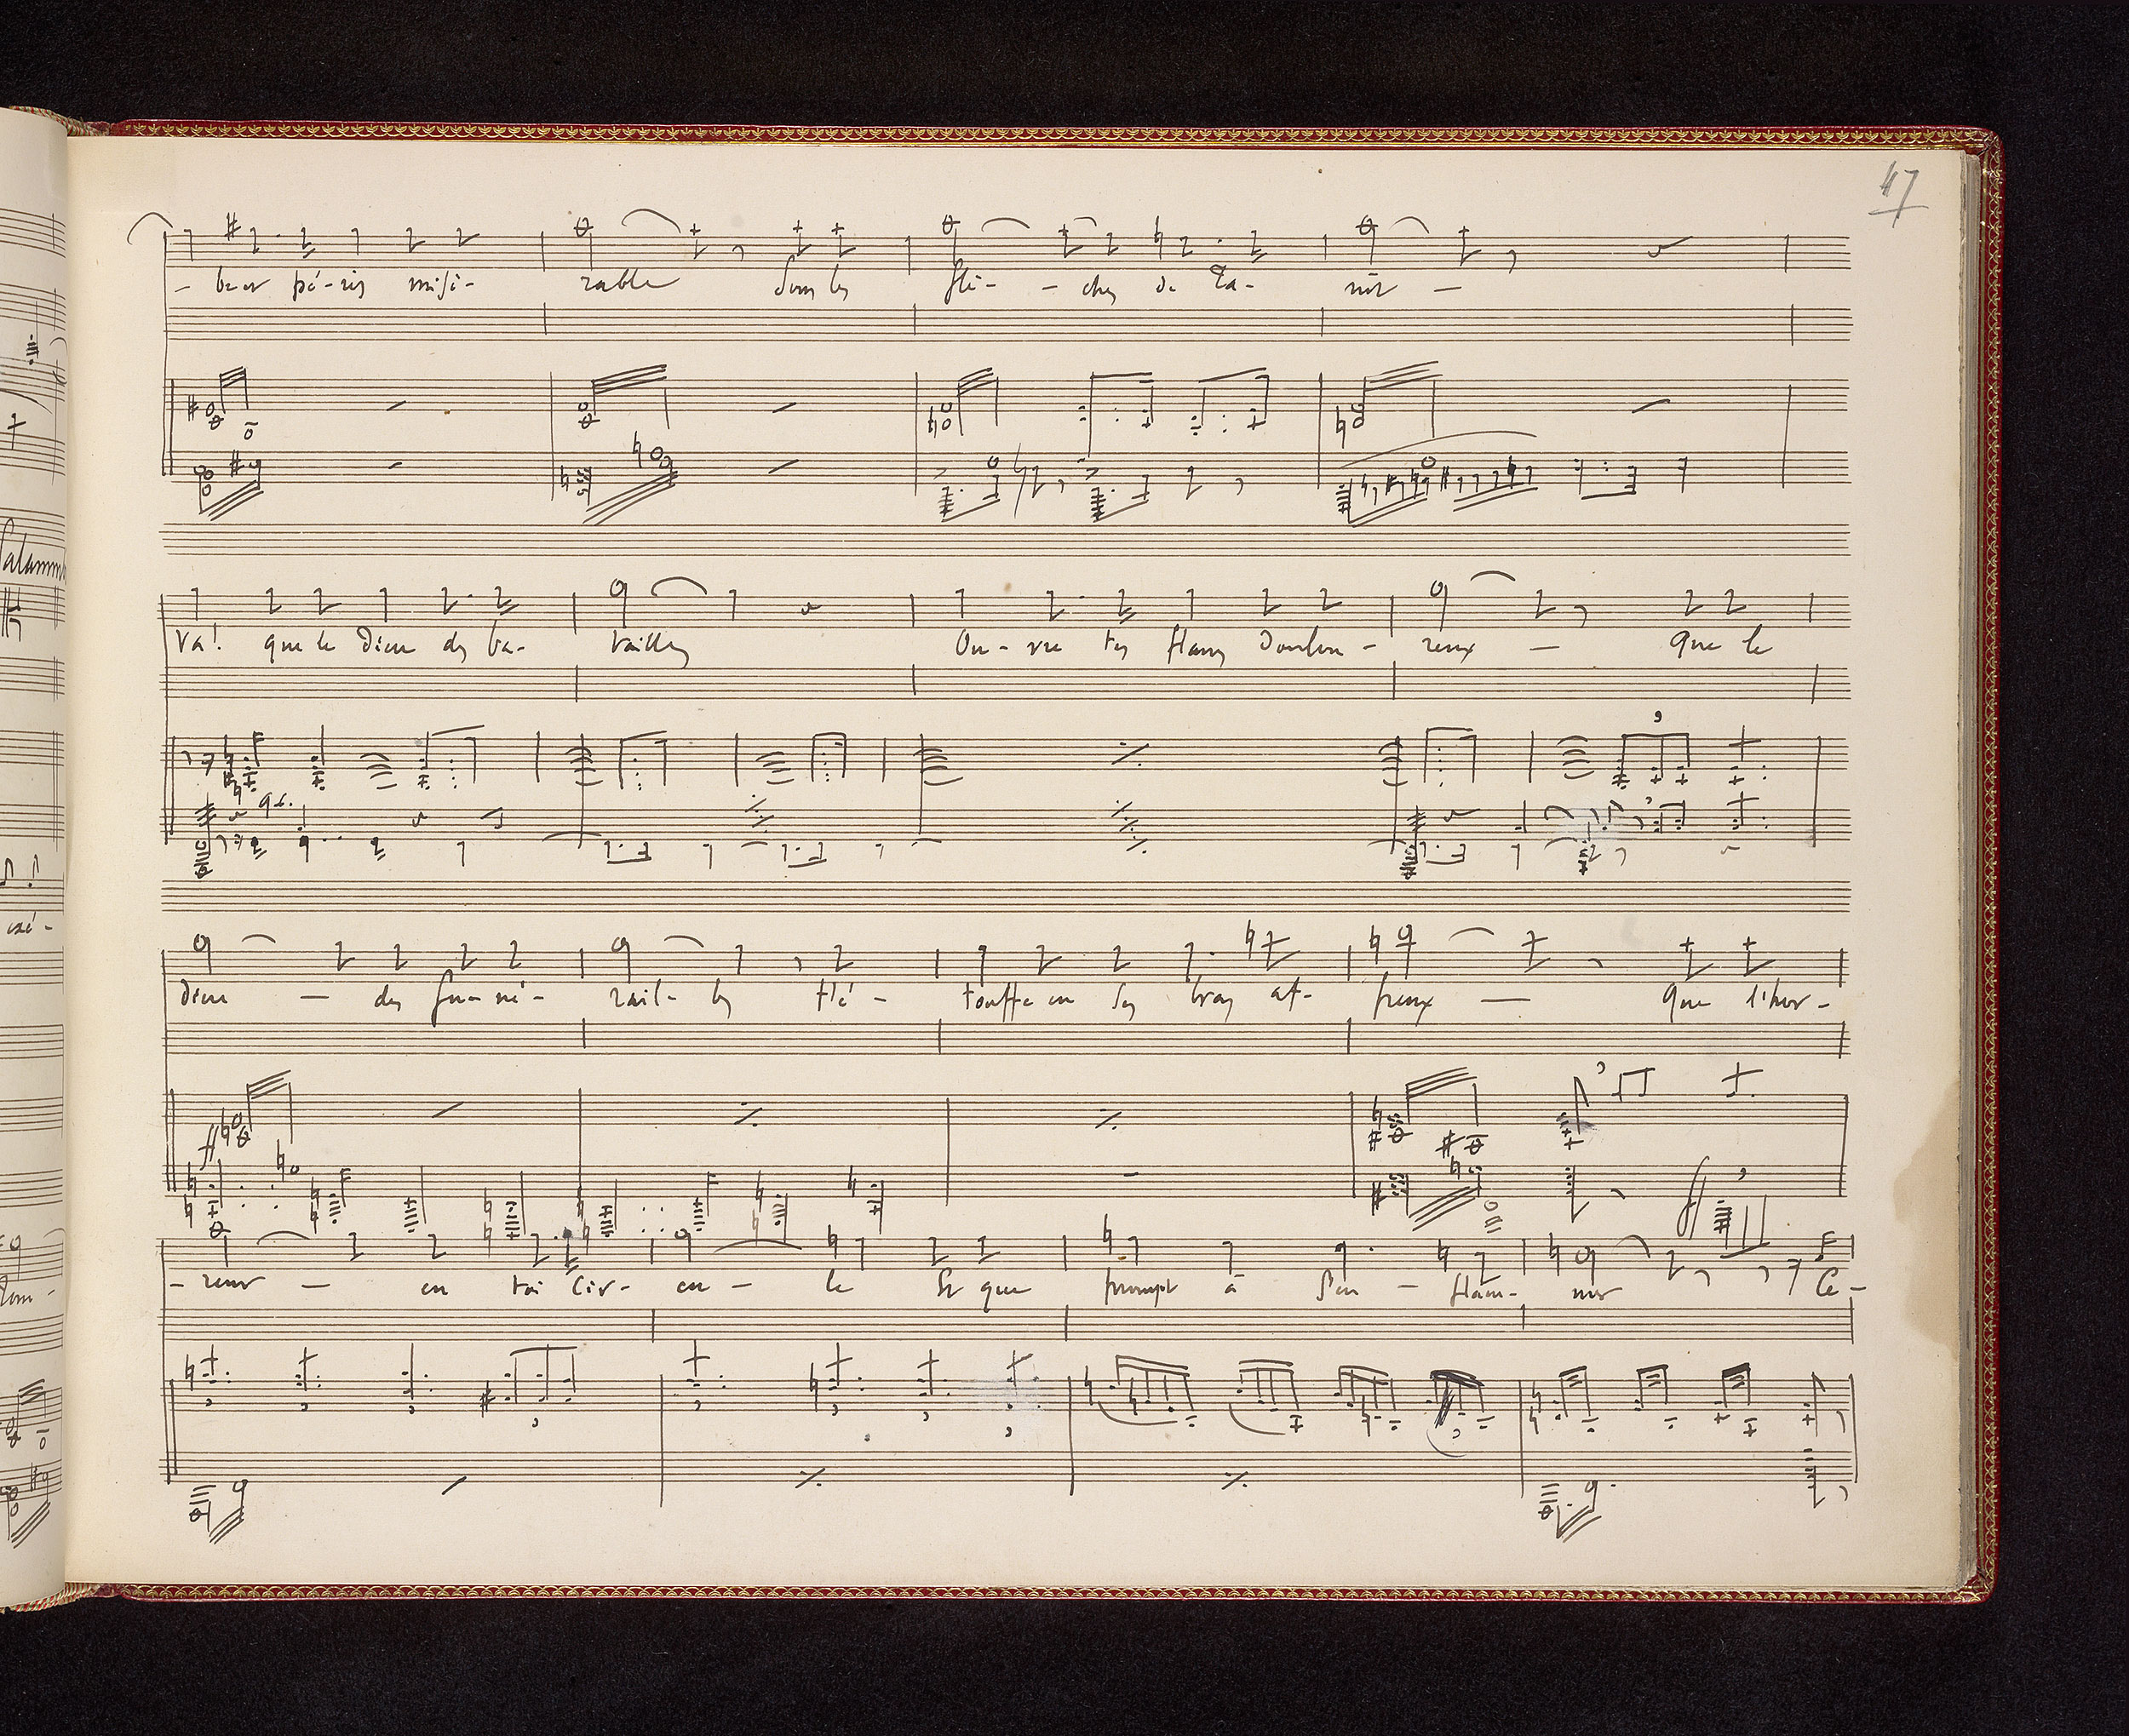 47
- ber périr misé- rable Sous les flè- - ches de Ta- nit -
Salammb
Va! que le Dieu des ba- tailles Ou- vre tes flancs doulou- reux - Que le
Dieu - des fu- né- rail- les t'é- touffe en ses bras af- freux - Que l'hor-
ff
- reur - en toi cir- cu- le Et que prompt à s'en - flam- mer Ce-